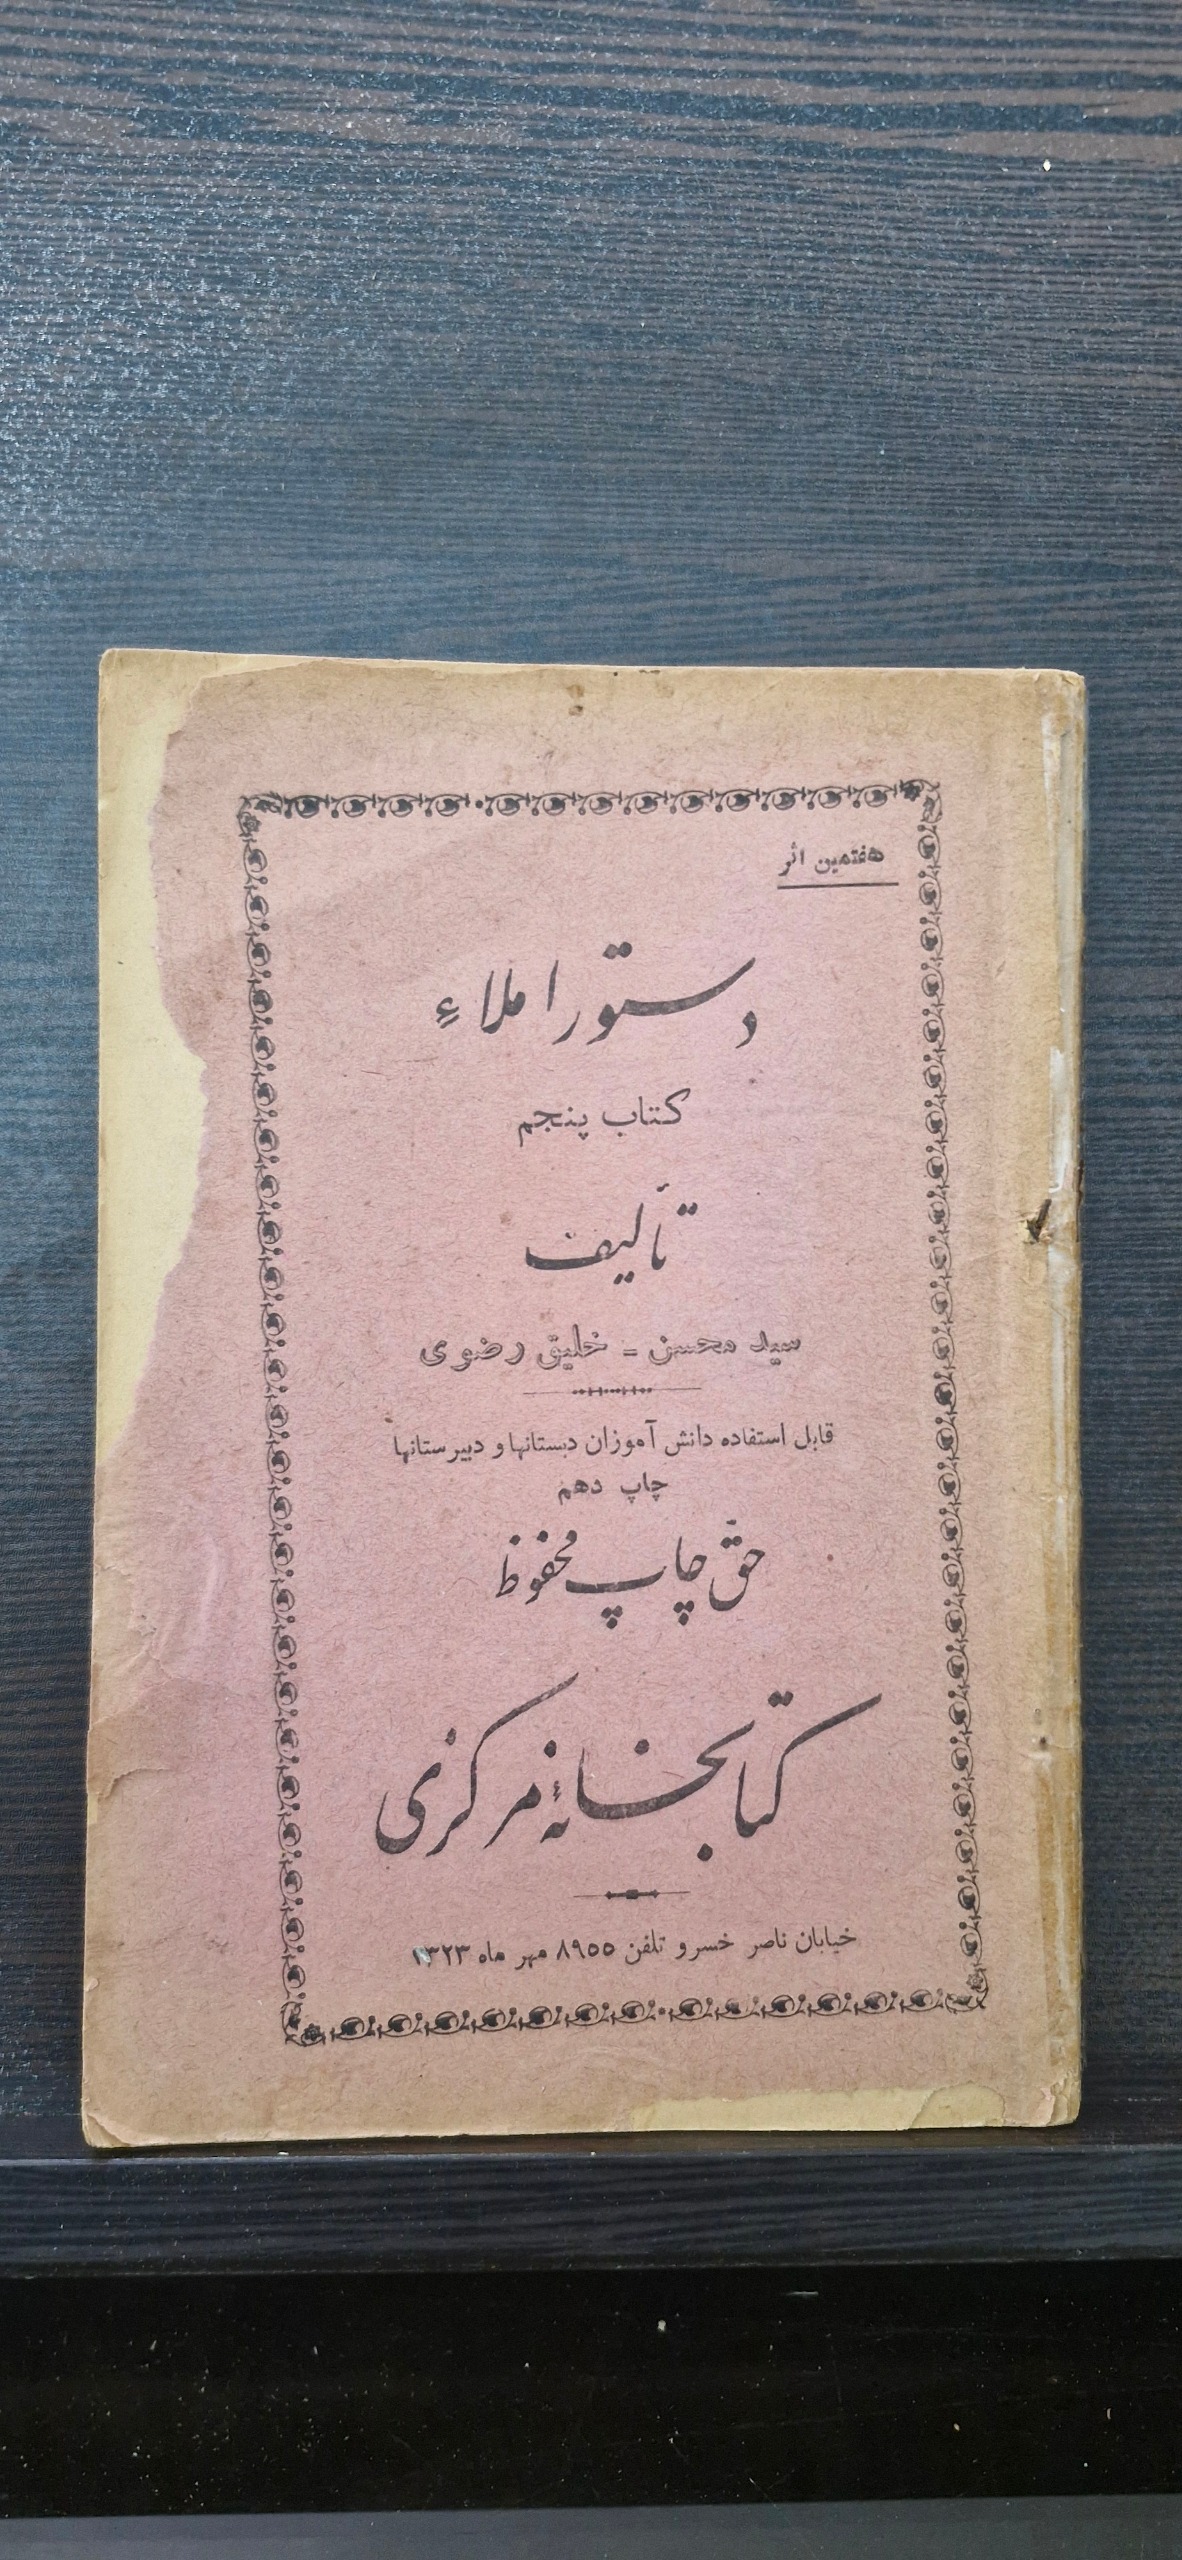 هفتمین اثر
دستور املاءِ
کتاب پنجم
تألیف
سید محسن - خلیق رضوی
قابل استفاده دانش آموزان دبستانها و دبیرستانها
چاپ دهم
حقّ چاپ محفوظ
کتابخانهٔ مرکزی
خیابان ناصر خسرو تلفن ۸۹۵۵ مهر ماه ۱۳۲۳